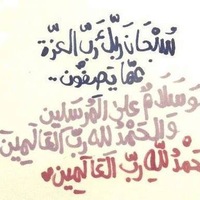 سُبْحَانَ رَبِّكَ رَبِّ العِزَّةِ
عَمَّا يَصِفُونَ ..
وَسَلَامٌ عَلَى المُرْسَلِينَ
وَالحَمْدُ لله رَبِّ العَالَمِينَ
حَمْدُ للهِ رَبِّ العَالَمِين